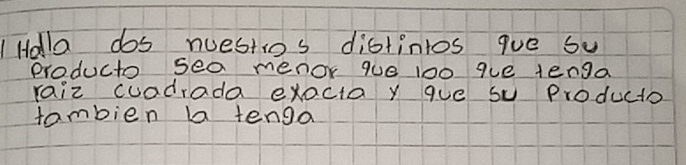 1 Halla dos nuestros distintos que su
producto sea menor que 100 que tenga
raiz cuadrada exacta y que su Producto
tambien la tenga